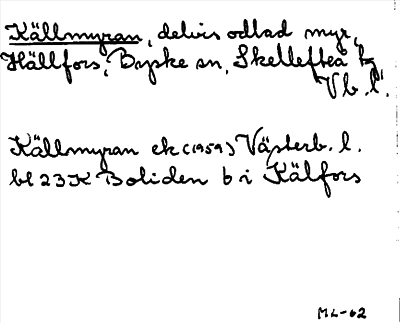 Källmyran, delvis odlad myr,
Hällfors, Byske sn, Skellefteå tg
Vb. l.
Källmyran ek (1959) Västerb. l.
bl 23K Boliden b i Källfors
ML-62